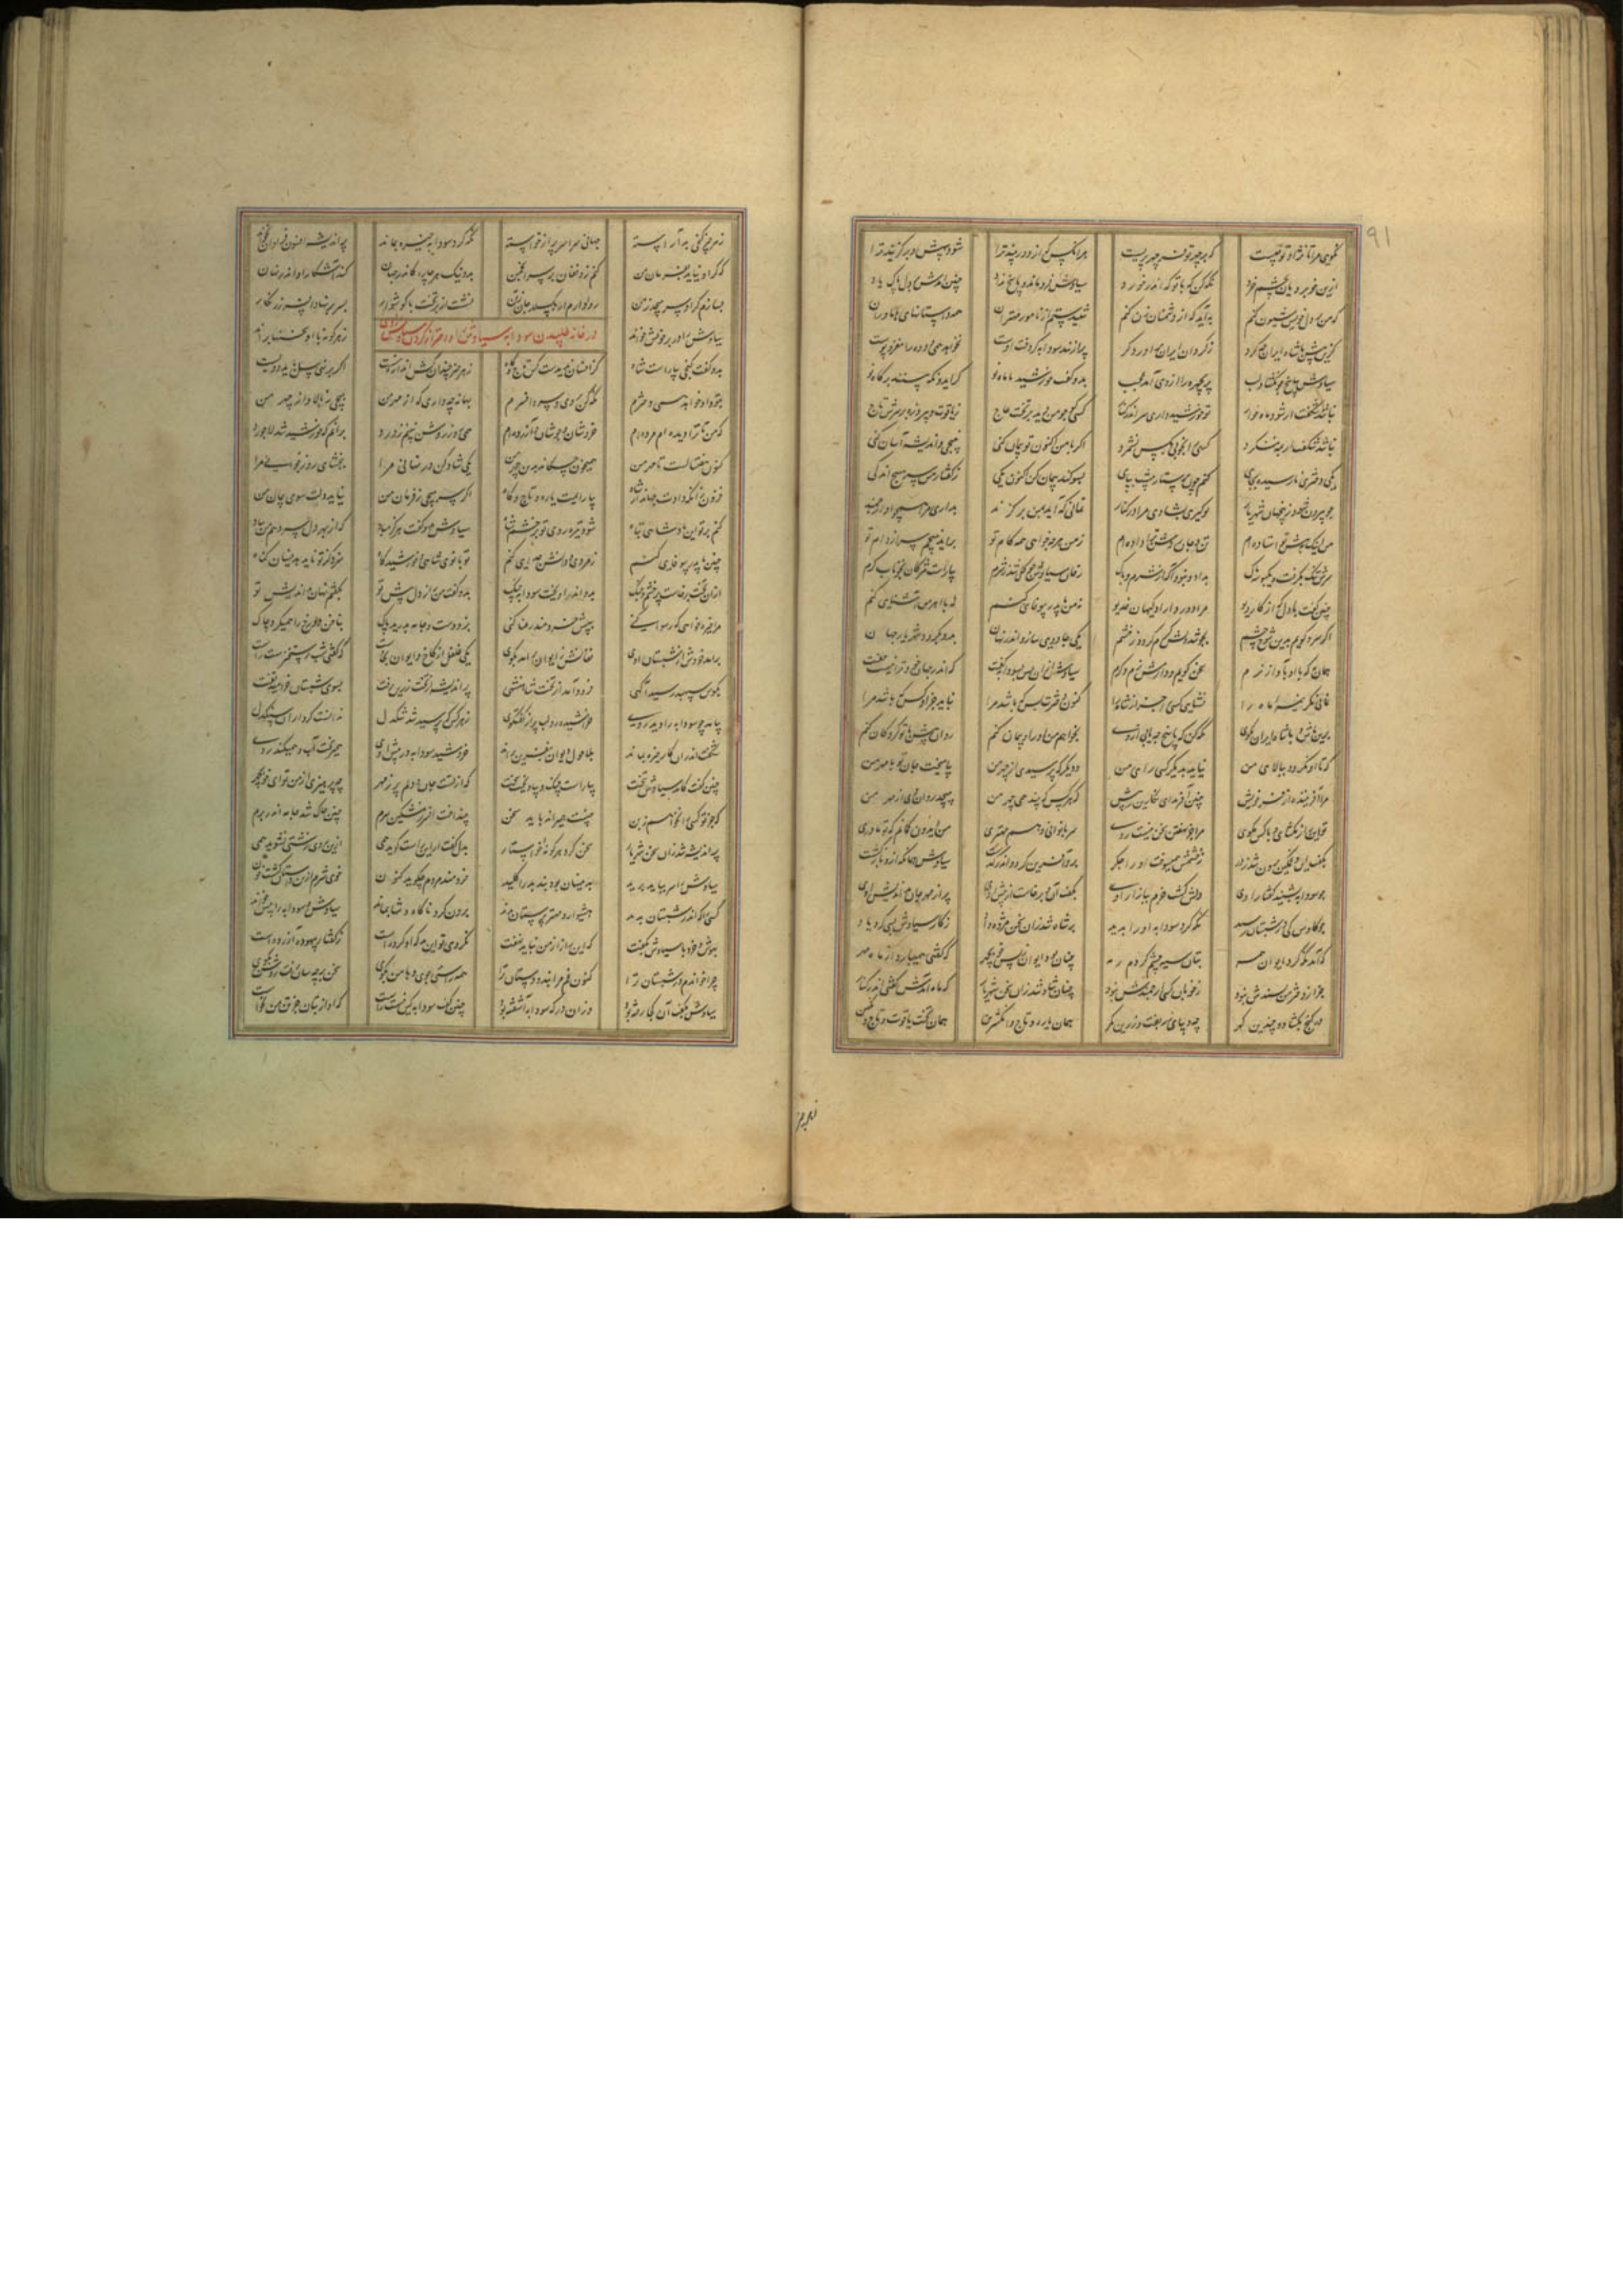 نگویی مرا تا نژاد تو چیست که بر چهر تو فر چهر پریست هر آنکس که از دور بیند ترا شود بیهش و برگزیند ترا
ازین خوبرویان بچشم خرد نگه کن که با تو که اندر خورد سیاوش فرو ماند و پاسخ نداد چنین آمدش بر دل پاک یاد
که من بر دل خویش شیون کنم به آید که از دشمنان زن کنم شنیدستم از نامور مهتران همه داستانهای هاماوران
کزین پیش با شاه ایران چه کرد ز گردان ایران برآورد گرد پر از بند سودابه کو دخت اوست نخواهد همی دوده را مغز و پوست
سیاوش بپاسخ چو بگشاد لب پریچهره را زو آمد عجب بدو گفت خورشید با ماه نو گر ایدونکه بینند بر گاه نو
نباشد شگفت ار شود ماه خوار تو خورشید داری سر اندر کنار کسی کو چو من دید بر تخت عاج ز یاقوت و پیروزه بر سرش تاج
نباشد شگفت ار به مه ننگرد کسی را بخوبی بکس نشمرد اگر با من اکنون تو پیمان کنی نپیچی و اندیشه آسان کنی
یکی دختری نارسیده بجای کنم چون پرستار پیشت بپای بسوگند پیمان کن اکنون یکی ز گفتار من سر مپیچ اندکی
چو بیرون شود زین جهان شهریار تو گیری بشادی مرا در کنار نمانی که آید بمن بر گزند بداری مرا همچو او ارجمند
من اینک بپیش تو استاده ام تن و جان روشن ترا داده ام ز من هرچه خواهی همه کام تو براید نپیچم سر از دام تو
سرش تنگ بگرفت و یک بداد و نبود آگه از شرم و باک رخان سیاوش چو گل شد ز شرم بیاراست مژگان بخوناب گرم
چنین گفت با دل که از کار دیو مرا دور داراد گیهان خدیو نه من با پدر بیوفایی کنم نه با اهرمن آشنایی کنم
اگر سرد گویم بدین شوخ چشم بجوشد دلش گرم گردد ز خشم یکی جادویی سازد اندر نهان بدو بگرود شهریار جهان
همان به که با او بآواز نرم سخن گویم و دارمش نرم و گرم سیاوش ازان پس بسودابه گفت که اندر جهان خود ترا نیست جفت
نمانی مگر نیمه ماه را نشایی کسی را جز از شاه را کنون دخترت بس که باشد مرا نباید جز او کس که باشد مرا
برین باش و با شاه ایران بگوی نگه کن که پاسخ چه یابی ازوی بخواهم من او را و پیمان کنم روان را پیش تو گروگان کنم
که تا او نگردد ببالای من نیاید بدیگر کسی رای من و دیگر که پرسیدی از چهر من بیامیخت جان تو با مهر من
مرا آفریننده از فر خویش چنین آفرید ای نگارین ز پیش که هر کس که بیند همی چهر من بپیچد روان وی از مهر من
تو این راز مگشای و با کس مگوی مرا جز نهفتن سخن نیست روی سر بانوانی و هم مهتری من ایدون گمانم که تو مادری
بگفت این و غمگین برون شد ز در ز خشمش همی سوخت او را جگر برو آفرین کرد و سیاوش بازگشت
چو سودابه بشنید گفتار اوی دلش گشت خرم ببازار اوی بگفت آن و برخاست از پیش اوی پر از مهر جان بداندیش اوی
چو کاوس کی در شبستان رسید نگه کرد سودابه او را بدید بر شاه شد زان سخن مژده داد ز کار سیاوش بسی کرد یاد
که آمد نگه کرد ایوان همه بتان سیه چشم کردم رمه چنان بود ایوان ز بس خوبچهر که گفتی همی بارد از ماه مهر
جز از دختر من پسندش نبود ز خوبان کسی ارجمندش نبود چنان شاد شد زان سخن شهریار که ماه آمدش گفتی اندر کنار
در گنج بگشاد و چندین گهر چه دیبای زربفت و زرین کمر همان یاره و تاج و انگشتری همان تخت یاقوت و تاج
ز هر چیز گنجی بد آراسته جهانی سراسر پر از خواسته نگه کرد سودابه خیره بماند پر اندیشه افسون فراوان بخواند
که گر او نیاید بفرمان من بد و نیک هر چاره کاندر جهان کنند آشکارا و اندر نهان
بسازم گر او سر بپیچد ز من کنم زو فغان بر سر انجمن نشست از بر تخت با گوشوار بسر بر نهاد افسر زرنگار
سیاوش را در بر خویش خواند ز هر گونه با او سخنها براند
در خانه طلبیدن سودابه سیاوش را
بدو گفت گنجی بیاراست شاه کزانسان ندیدست کس تاج و گاه ز هر چیز چندان کش اندازه نیست اگر بر نهی پیل باید دویست
بتو داد خواهد همی دخترم نگه کن بروی و سر و افسرم بهانه چه داری که از مهر من بپیچی ز بالا و از چهر من
که من تا ترا دیده ام مرده ام خروشان و جوشان و آزرده ام همی روز روشن نبینم ز درد برانم که خورشید شد لاجورد
کنون هفت سالست تا مهر من همی خون چکاند بدین چهر من یکی شاد کن در نهانی مرا ببخشای روز جوانی مرا
فزون زانکه دادت جهاندار شاه بیارایمت یاره و تاج و گاه اگر سر بپیچی ز فرمان من نیاید دلت سوی پیمان من
کنم بر تو این پادشاهی تباه شود تیره روی تو بر چشم شاه سیاوش بدو گفت هرگز مباد که از بهر دل سر دهم من بباد
چنین با پدر بیوفایی کنم ز مردی و دانش جدایی کنم تو بانوی شاهی و خورشید گاه سزد کز تو ناید بدینسان گناه
ازان تخت برخاست پر خشم و جنگ بدو اندر آویخت سودابه چنگ بدو گفت من راز دل پیش تو بگفتم نهان بداندیش تو
مرا خیره خواهی که رسوا کنی بپیش خردمند رعنا کنی بزد دست و جامه بدرید پاک بناخن دو رخ را همیکرد چاک
برآمد خروش از شبستان اوی فغانش ز ایوان برآمد بکوی یکی غلغل از کاخ و ایوان بخاست که گفتی شب رستخیزست راست
بگوش سپهبد رسید آگهی فرود آمد از تخت شاهنشهی پر اندیشه از تخت زرین برفت بسوی شبستان خرامید تفت
بیامد چو سودابه را دید روی خراشیده رو لب پر از گفتگوی ز هر کس بپرسید شد تنگدل ندانست کردار آن سنگدل
خروشید سودابه در پیش اوی همی ریخت آب و همیکند موی
چنین گفت کامد سیاوش بتخت بیاراست چنگ و بیاویخت سخت که از تست جان و دلم پر ز مهر چه پرهیزی از من تو ای خوبچهر
که جز تو کسی را نخواهم ز بن چنینت همی راند باید سخن بینداخت افسر ز مشکین سرم چنین چاک شد جامه اندر برم
پر اندیشه شد زان سخن شهریار سخن کرد هر گونه خواستار بدل گفت ار این راست گوید همی ازین روی زشتی نجوید همی
سیاوش را سر بباید برید بدینسان بود بند بد را کلید خردمند مردم چگوید کنون خوی شرم ازین داستان گشت خون
کسی را که اندر شبستان بدند هشیوار و مهتر پرستان بدند سیاوش و سودابه را پیش خواند
بهوش و خرد با سیاوش بگفت که این راز از من نباید نهفت نکردی تو این بد که او کرده است ز گفتار بیهوده آزرده است
چرا خواندم در شبستان ترا کنون غم مرا بند و دستان ترا همه راستی جوی و با من بگوی سخن بر چه سان رفت بنمای روی
سیاوش بگفت آن کجا رفته بود وزان در که سودابه آشفته بود چنین گفت سودابه کین نیست راست که او از بتان جز تن من نخواست